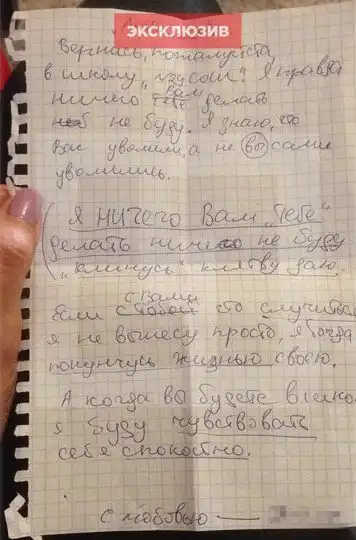 ЭКСКЛЮЗИВ
Вернись, пожалуйста,
в школу, Я правда
Вам
ничего тебе делать
не буду. Я знаю, что
Вас уволили, а не вы сами
уволились.
Я ничего Вам "Тебе"
делать ничего не буду
"клянусь" клятву даю.
с Вами
Если с тобой что случиться
я не вынесу просто, я тогда
покунчую жизнью своею.
А когда вы будете в школе
я буду чувствовать
себя спокойно.
с любовью —